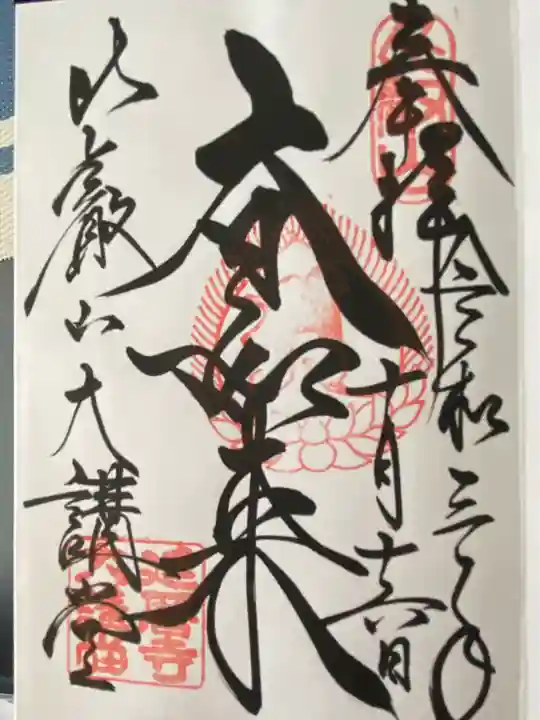 奉拝 令和三年
十月十六日
大日如来
比叡山 大講堂
延暦寺